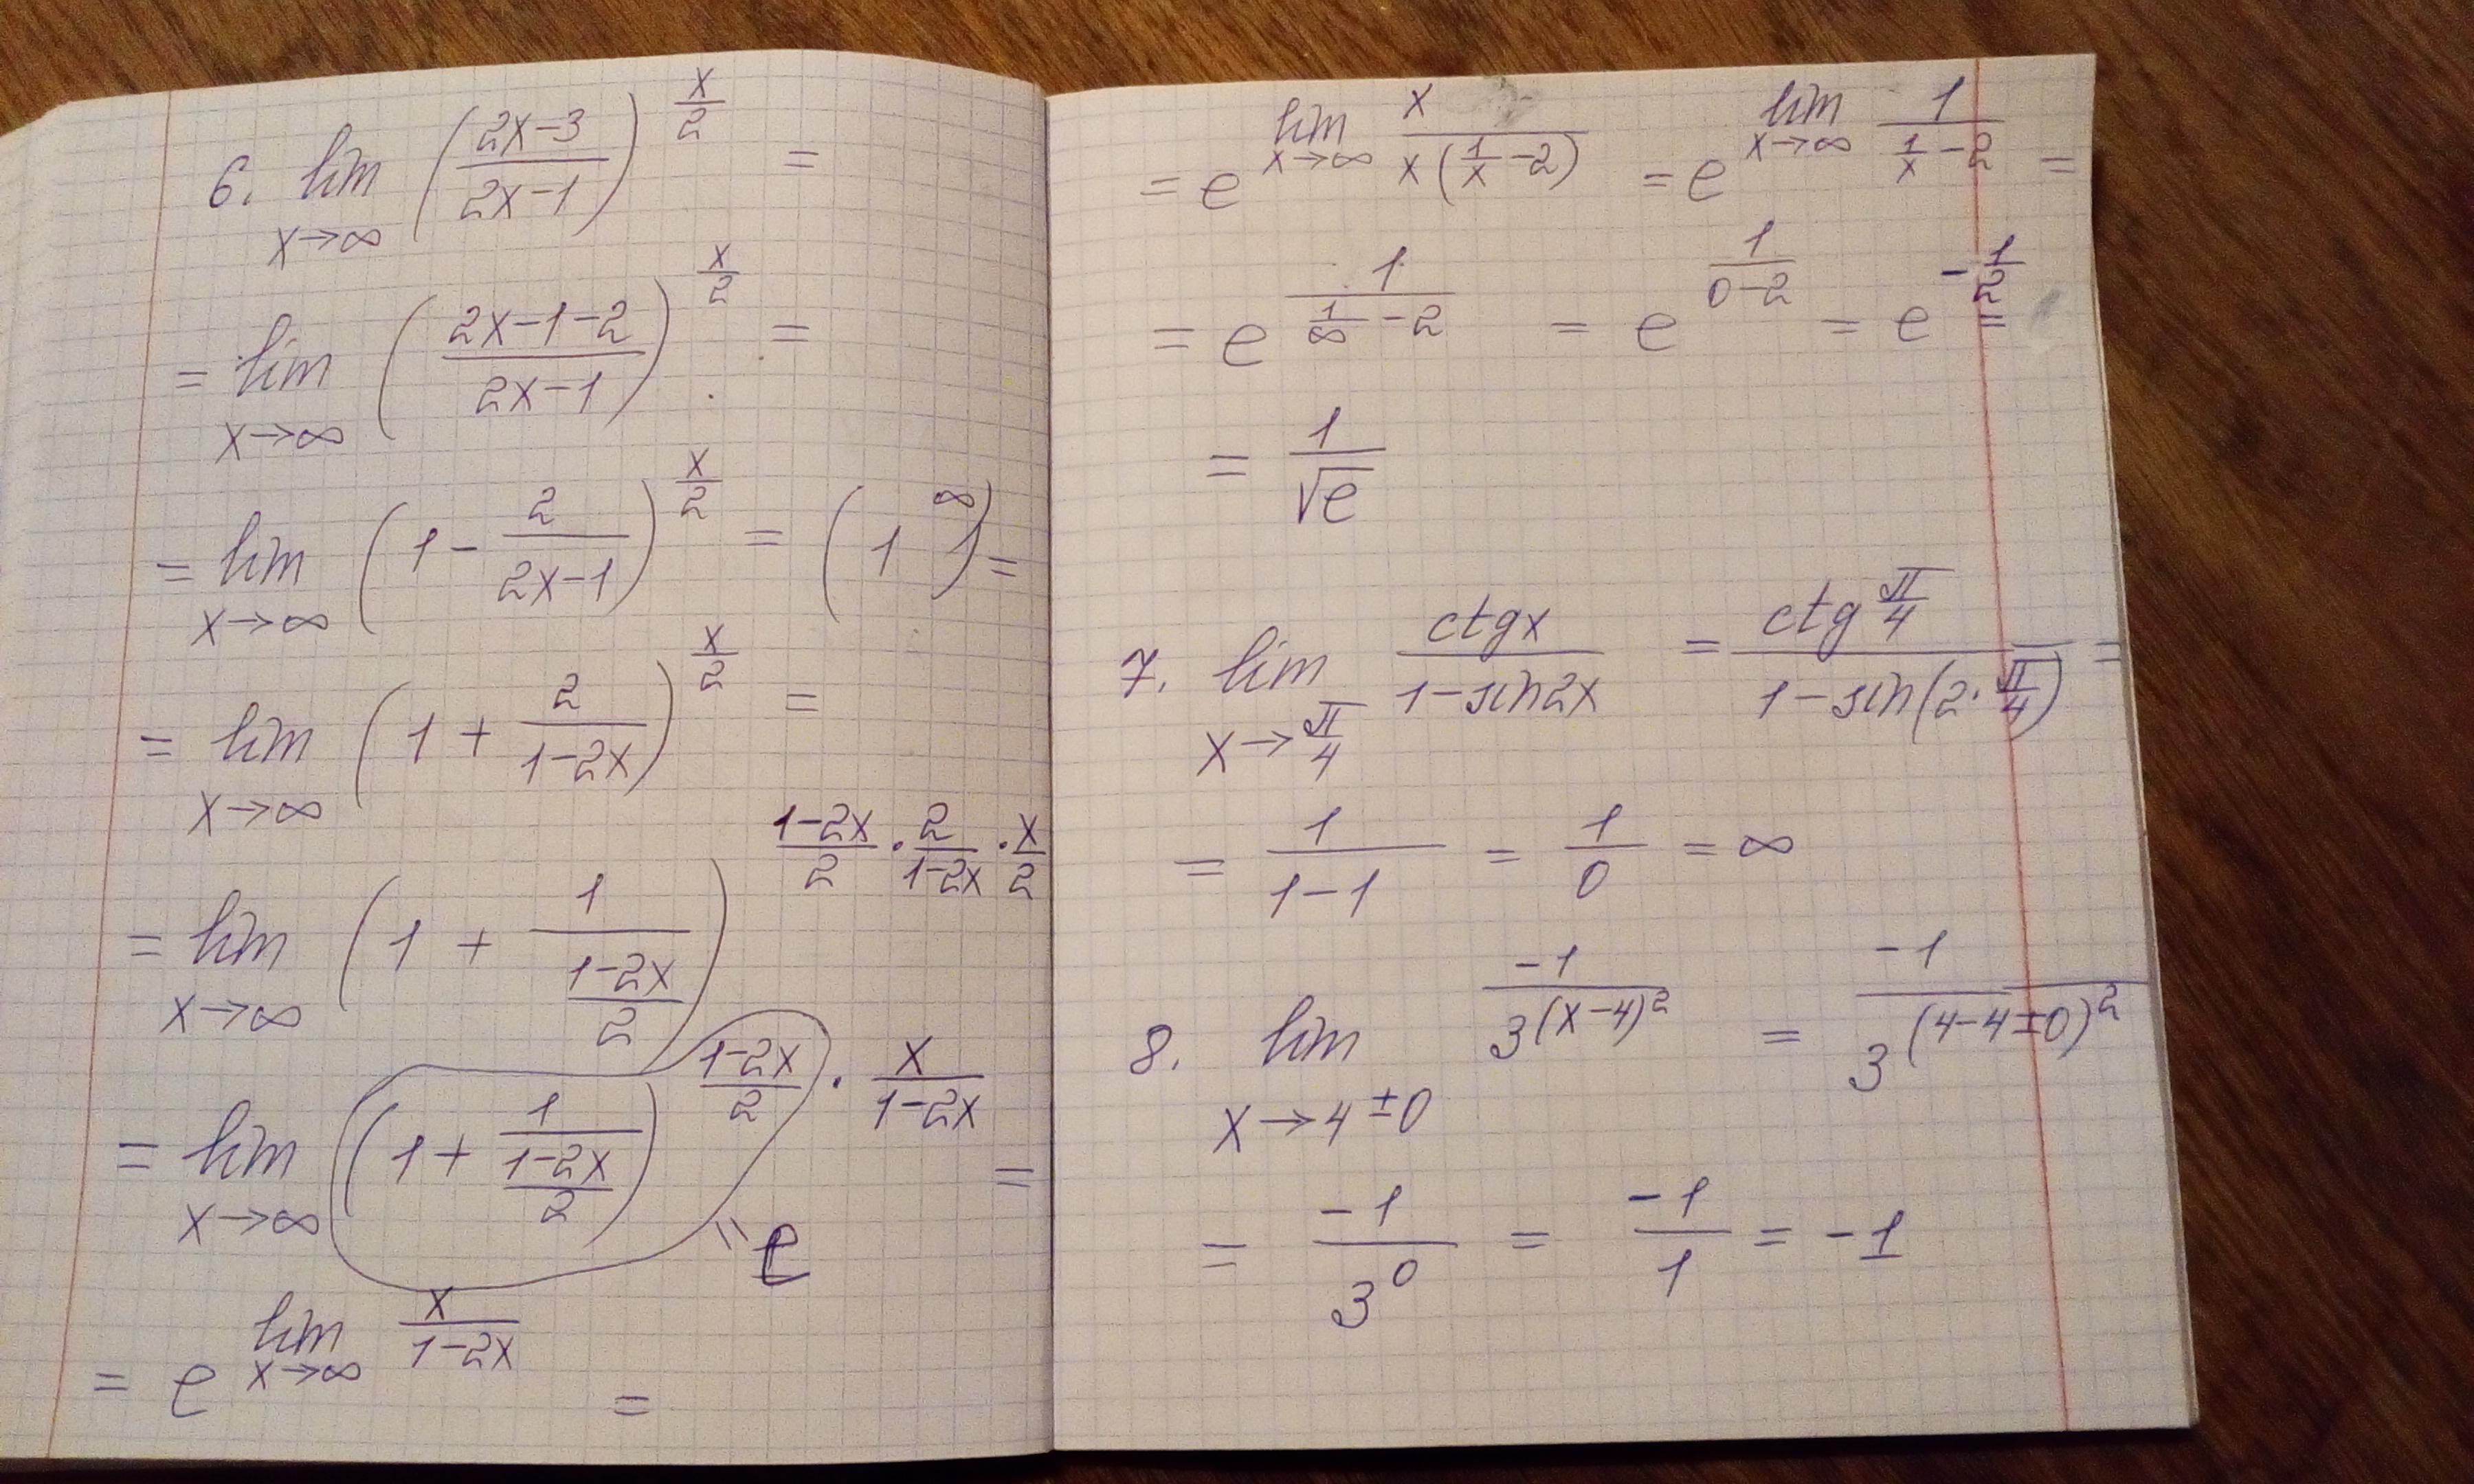 6. lim x→∞ ((2x-3)/(2x-1))^(x/2) =
= lim x→∞ ((2x-1-2)/(2x-1))^(x/2) =
= lim x→∞ (1 - 2/(2x-1))^(x/2) = (1^∞) =
= lim x→∞ (1 + 2/(1-2x))^(x/2) =
= lim x→∞ (1 + 1/((1-2x)/2))^((1-2x)/2 · 2/(1-2x) · x/2)
= lim x→∞ (1 + 1/((1-2x)/2))^((1-2x)/2 · x/(1-2x)) =
= e
= e^(lim x→∞ x/(1-2x)) =
= e^(lim x→∞ x/(x(1/x - 2))) = e^(lim x→∞ 1/(1/x - 2)) =
= e^(1/(1/∞ - 2)) = e^(1/(0-2)) = e^(-1/2) =
= 1/√e
7. lim x→π/4 ctgx/(1-sin2x) = ctg π/4/(1-sin(2·π/4)) =
= 1/(1-1) = 1/0 = ∞
8. lim x→4±0 -1/3^(x-4)² = -1/3^(4-4±0)²
= -1/3^0 = -1/1 = -1